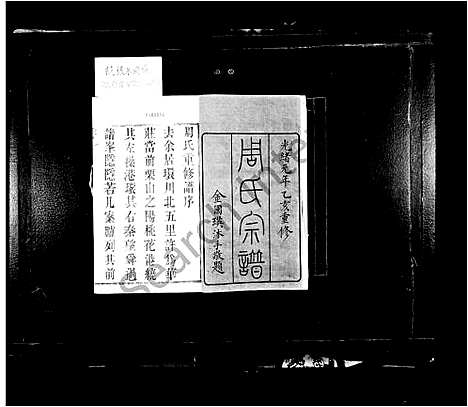 光緒元年乙亥重修
周氏宗譜
金國琪沐手敬題
周氏重修譜序
去余居環川北五里許為華
莊當前栗山之陽桃花港繞
其左接港環其右秦望舜過
諸峯隱隱若几案臚列其前